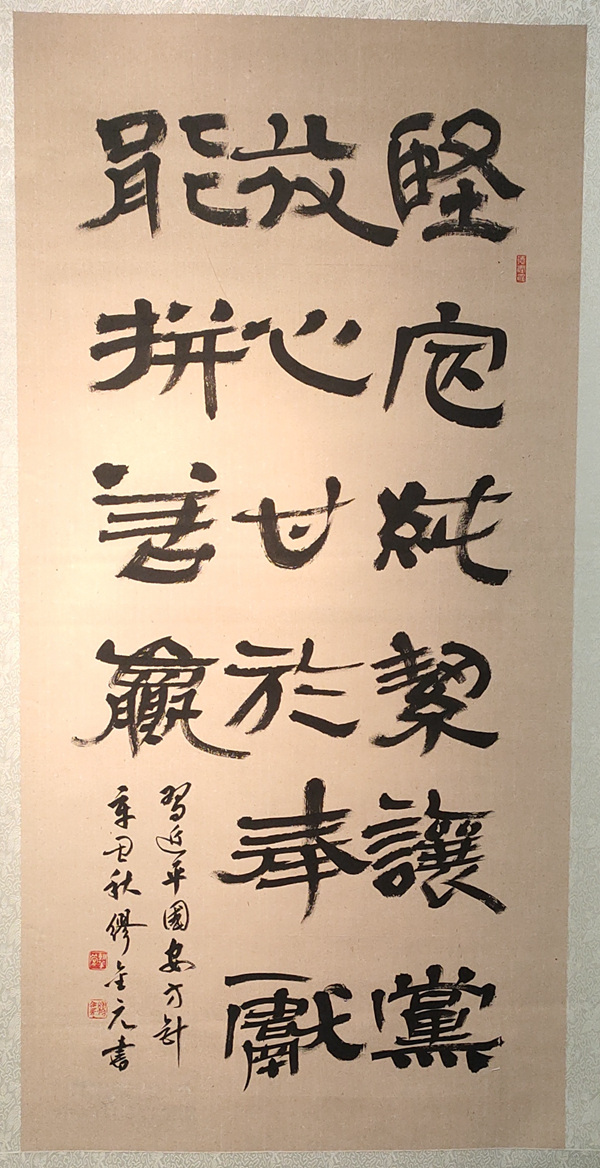 堅定純潔讓黨
放心甘於奉獻
能拼善贏
習近平國安方針
辛丑秋繆金元書